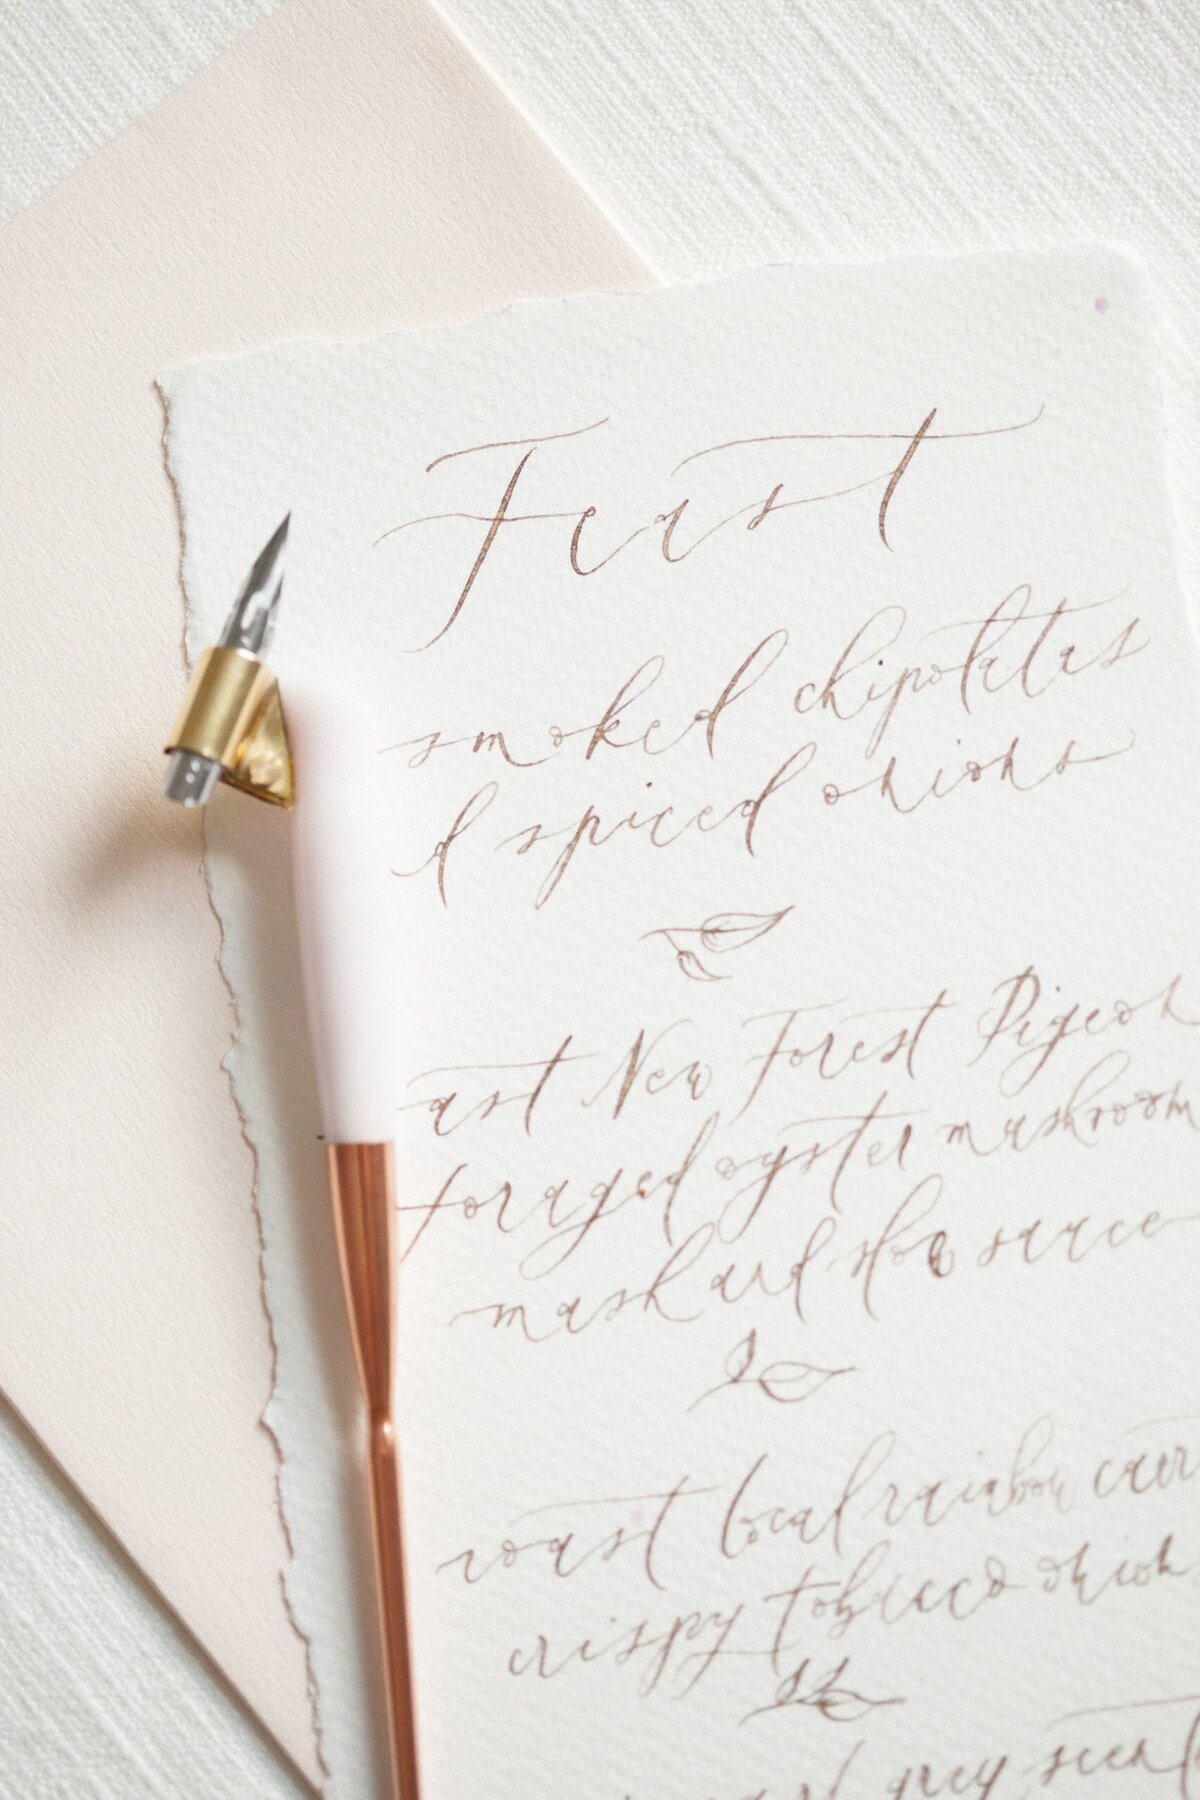 Feast
smoked chipolatas
d spiced onions
ast New Forest Pigeon
foraged oyster mushroom
mash and sloe sauce
roast local rainbow carr
crispy tobacco onion
grey scent